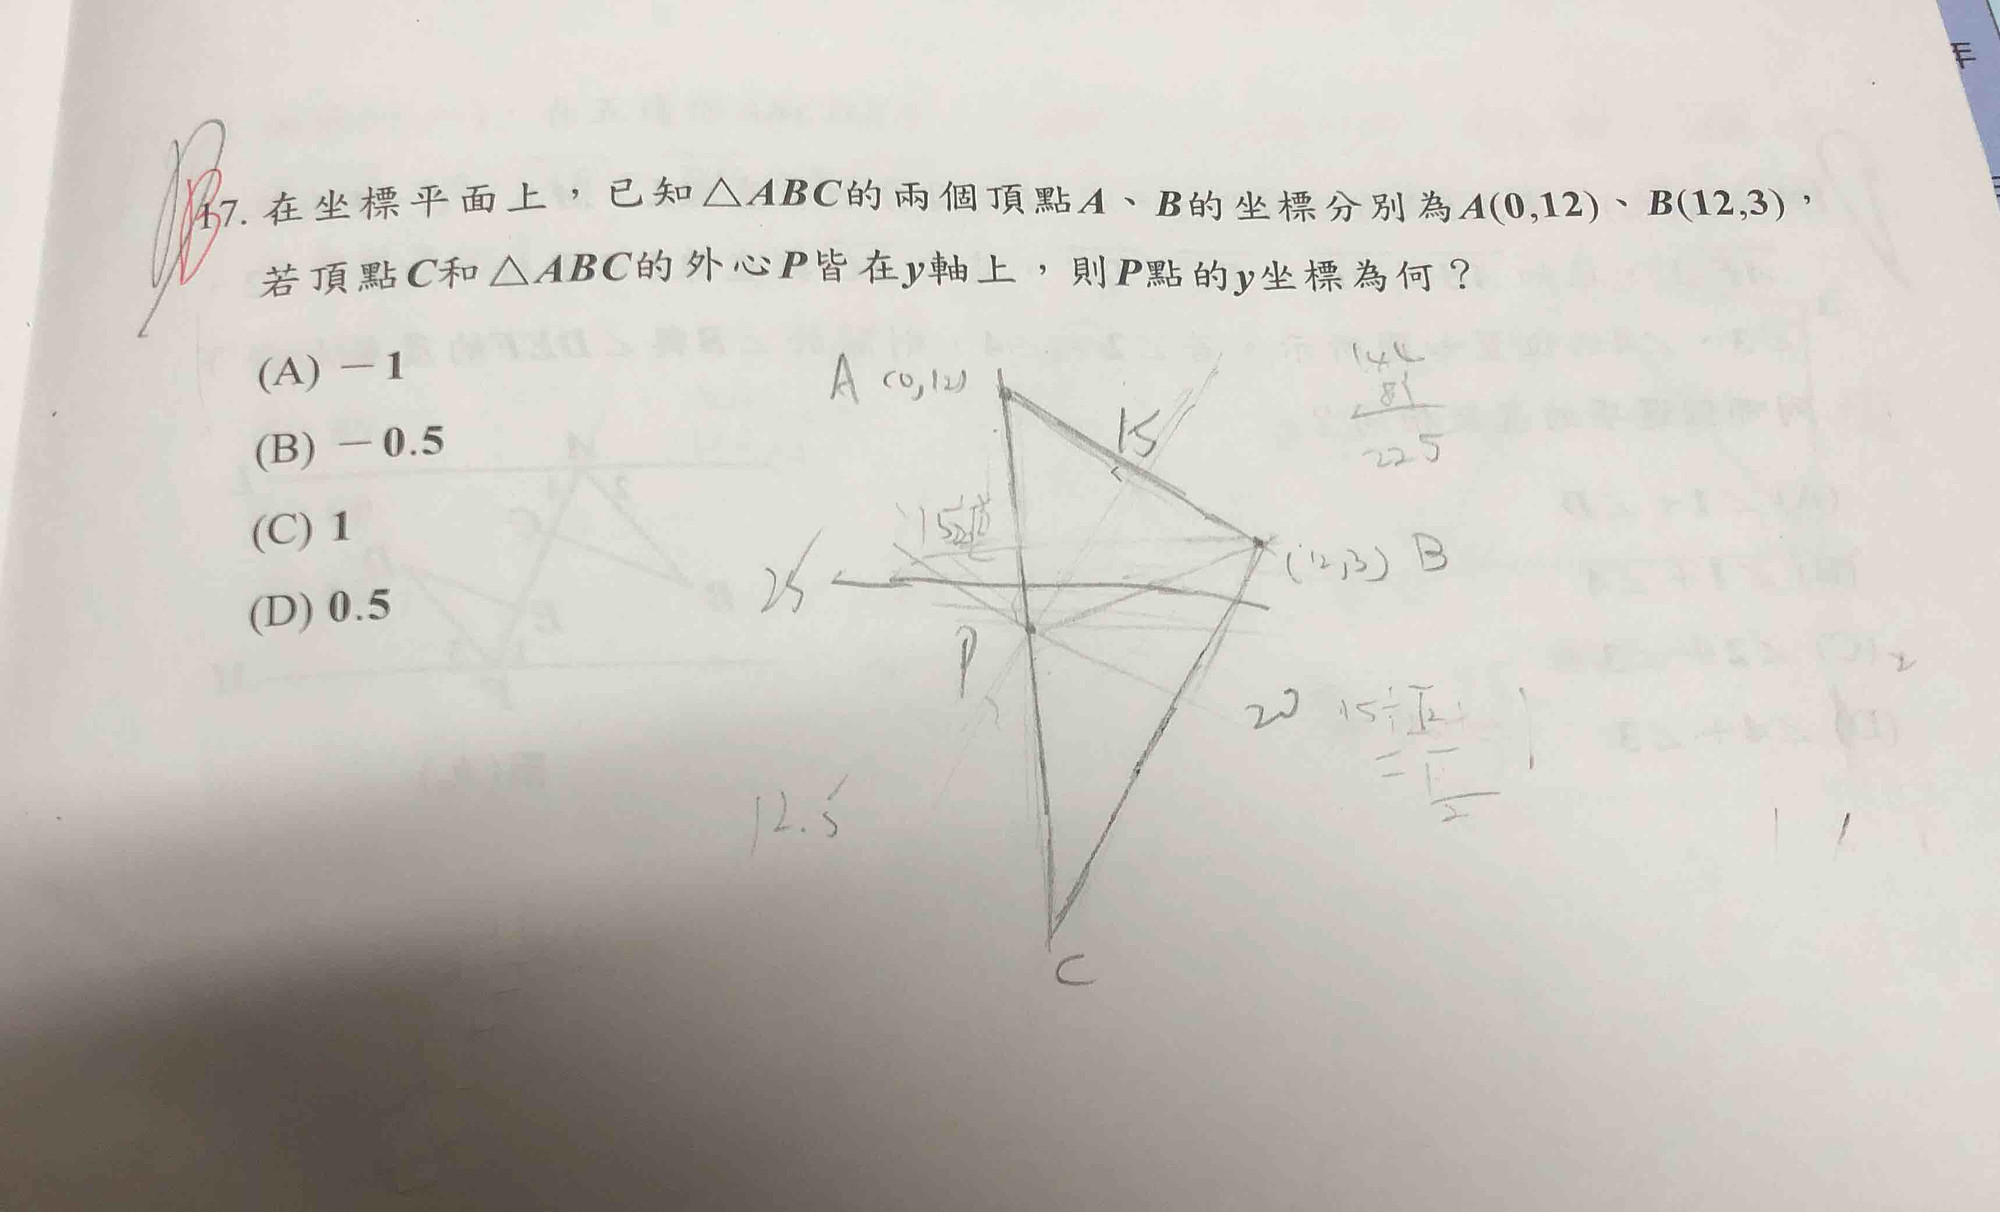 B
17. 在坐標平面上，已知△ABC的兩個頂點A、B的坐標分別為A(0,12)、B(12,3)，
若頂點C和△ABC的外心P皆在y軸上，則P點的y坐標為何？
(A) －1
(B) －0.5
(C) 1
(D) 0.5
A (0,12)
15
144
81
225
(12,3) B
25
P
20
15÷√2
12.5
C
年